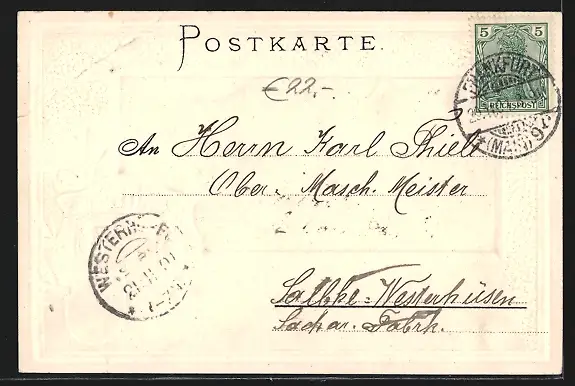 POSTKARTE.
5 5
REICHSPOST
FRANKFURT
(MAIN)
€22,-
An Herrn Karl Thiele
Ober-Masch. Meister
WESTERHÜSEN
Salbke=Westerhüsen
Sachar. Fabrk.